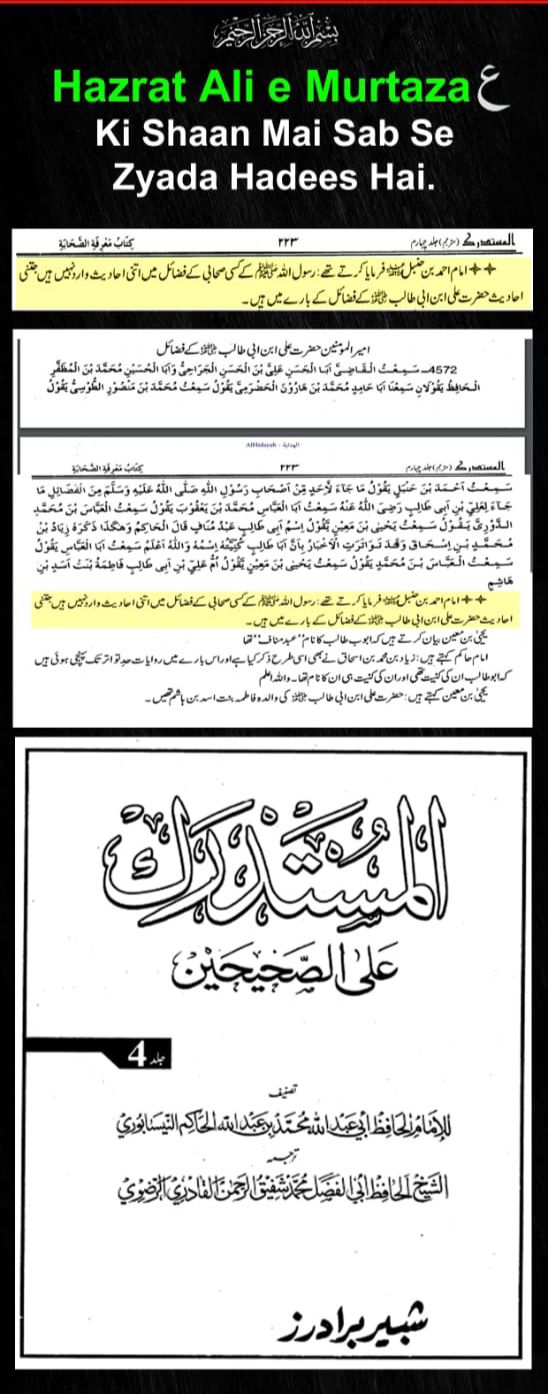 بسم الله الرحمن الرحيم
Hazrat Ali e Murtaza ع
Ki Shaan Mai Sab Se
Zyada Hadees Hai.
المستدرك (مترجم) جلد چہارم ۲۲۳ كِتَابُ مَعْرِفَةِ الصَّحَابَةِ
✦✦ امام احمد بن حنبل فرمایا کرتے تھے: رسول اللہ ﷺ کے کسی صحابی کے فضائل میں اتنی احادیث وارد نہیں ہیں جتنی
احادیث حضرت علی ابن ابی طالب کے فضائل کے بارے میں ہیں۔
امیر المومنین حضرت علی ابن ابی طالب کے فضائل
4572۔ سَمِعْتُ الْقَاضِيَ اَبَا الْحَسَنِ عَلِيَّ بْنَ الْحَسَنِ الْجَرَاحِيَّ وَاَبَا الْحُسَيْنِ مُحَمَّدَ بْنَ الْمُظَفَّرِ
الْحَافِظَ يَقُوْلَانِ سَمِعْنَا اَبَا حَامِدٍ مُحَمَّدَ بْنَ هَارُوْنَ الْحَضْرَمِيَّ يَقُوْلُ سَمِعْتُ مُحَمَّدَ بْنَ مَنْصُوْرٍ الطُّوْسِيَّ يَقُوْلُ
AlHidayah - الهداية
المستدرك (مترجم) جلد چہارم ۲۲۳ كِتَابُ مَعْرِفَةِ الصَّحَابَةِ
سَمِعْتُ اَحْمَدَ بْنَ حَنْبَلٍ يَقُوْلُ مَا جَآءَ لِاَحَدٍ مِّنْ اَصْحَابِ رَسُوْلِ اللهِ صَلَّى اللهُ عَلَيْهِ وَسَلَّمَ مِنَ الْفَضَائِلِ مَا
جَآءَ لِعَلِيِّ بْنِ اَبِي طَالِبٍ رَضِيَ اللهُ عَنْهُ سَمِعْتُ اَبَا الْعَبَّاسِ مُحَمَّدَ بْنَ يَعْقُوْبَ يَقُوْلُ سَمِعْتُ الْعَبَّاسَ بْنَ مُحَمَّدٍ
الدُّوْرِيَّ يَقُوْلُ سَمِعْتُ يَحْيَى بْنَ مَعِيْنٍ يَّقُوْلُ اِسْمُ اَبِي طَالِبٍ عَبْدُ مَنَافٍ قَالَ الْحَاكِمُ وَهٰكَذَا ذَكَرَهُ زِيَادُ بْنُ
مُحَمَّدِ بْنِ اِسْحَاقَ وَقَدْ تَوَاتَرَتِ الْاَخْبَارُ بِاَنَّ اَبَا طَالِبٍ كُنْيَتُهُ اِسْمُهُ وَاللهُ اَعْلَمُ سَمِعْتُ اَبَا الْعَبَّاسِ يَقُوْلُ
سَمِعْتُ الْعَبَّاسَ بْنَ مُحَمَّدٍ يَقُوْلُ سَمِعْتُ يَحْيَى بْنَ مَعِيْنٍ يَّقُوْلُ اُمُّ عَلِيِّ بْنِ اَبِي طَالِبٍ فَاطِمَةُ بْنَتُ اَسَدِ بْنِ
هَاشِمٍ
✦✦ امام احمد بن حنبل فرمایا کرتے تھے: رسول اللہ ﷺ کے کسی صحابی کے فضائل میں اتنی احادیث وارد نہیں ہیں جتنی
احادیث حضرت علی ابن ابی طالب کے فضائل کے بارے میں ہیں۔
یحییٰ بن معین بیان کرتے ہیں کہ ابوطالب کا نام "عبد مناف" تھا
امام حاکم کہتے ہیں: زیاد بن محمد بن اسحاق نے بھی اسی طرح ذکر کیا ہے اور اس بارے میں روایات حد تواتر تک پہنچی ہوئی ہیں
کہ ابوطالب ان کی کنیت تھی اور ان کی کنیت ہی ان کا نام تھا۔ واللہ اعلم
یحییٰ بن معین کہتے ہیں: حضرت علی ابن ابی طالب کی والدہ فاطمہ بنت اسد بن ہاشم تھیں۔
المُسْتَدْرَك
عَلَى الصَّحِيحَيْن
جلد 4
تصنیف
للإمام الحافظ أبي عبد الله محمد بن عبد الله الحاكم النيسابوري
ترجمہ
الشيخ الحافظ أبي الفضل محمد شفيق الرحمن القادري الرضوي
شبیر برادرز